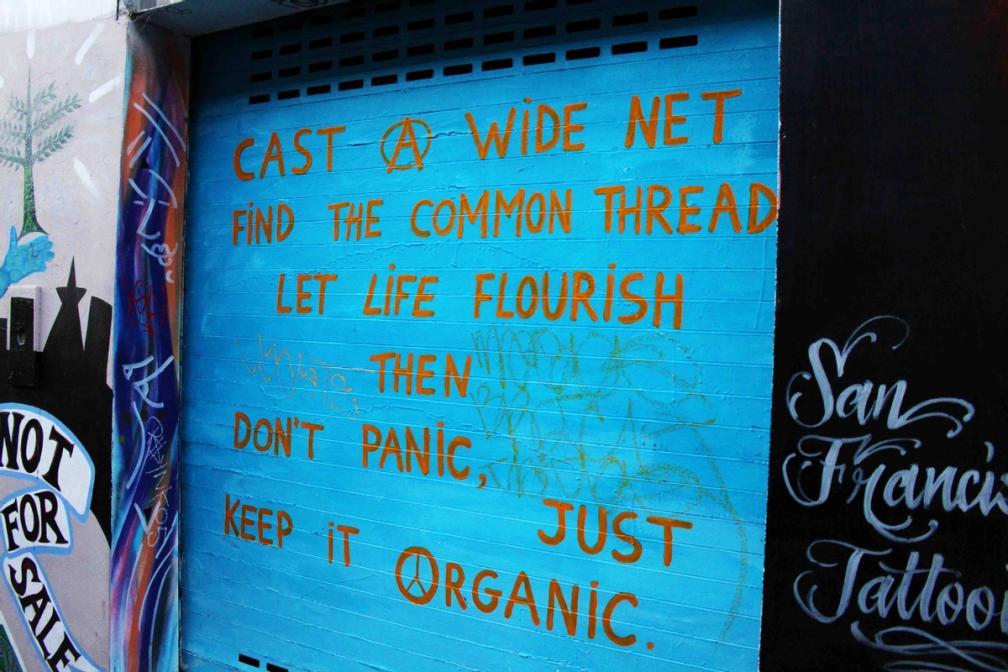 CAST A WIDE NET
FIND THE COMMON THREAD
LET LIFE FLOURISH
THEN
DON'T PANIC, JUST
KEEP IT ORGANIC.
NOT
FOR
SALE
San
Francis
Tattoo